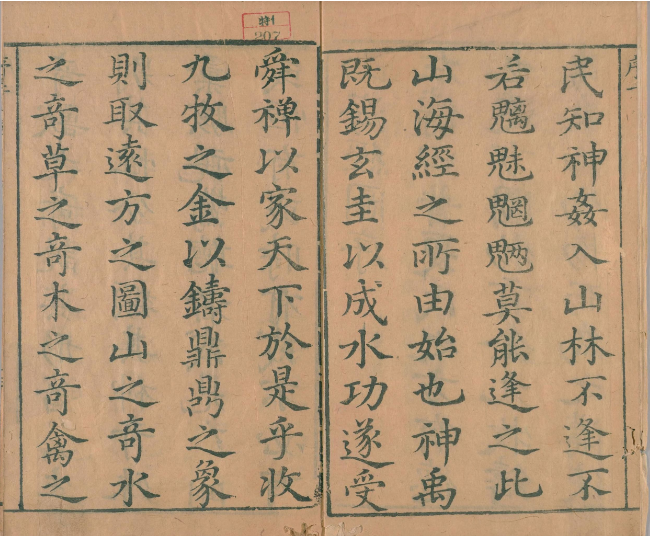 民知神姦入山林不逢不
若魑魅魍魎莫能逢之此
山海經之所由始也神禹
既錫玄圭以成水功遂受
舜禪以家天下於是乎收
九牧之金以鑄鼎鼎之象
則取遠方之圖山之竒水
之竒草之竒木之竒禽之
特1
207